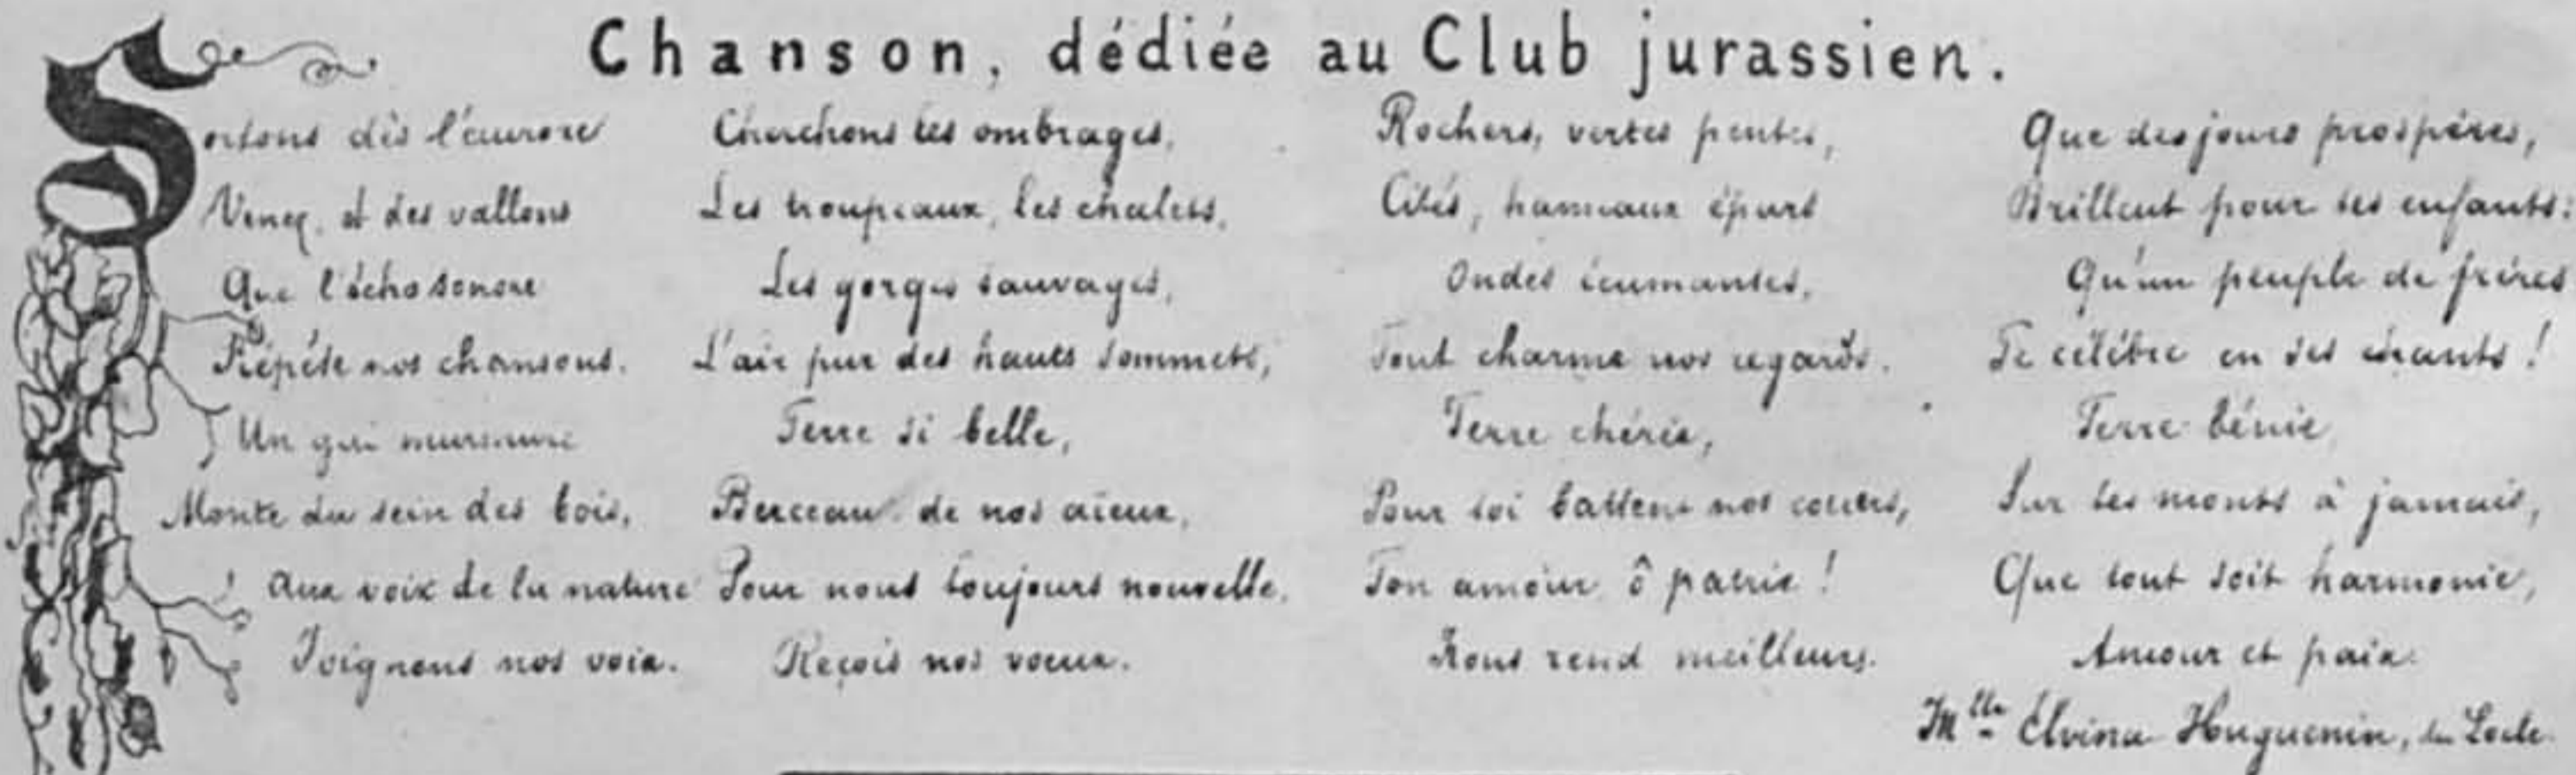 Chanson, dédiée au Club jurassien.
Sortons dès l'aurore
Venez, et des vallons
Que l'écho sonore
Répète nos chansons.
Un gai murmure
Monte du sein des bois,
Aux voix de la nature
Joignons nos voix.
Cherchons les ombrages,
Les troupeaux, les chalets,
Les gorges sauvages,
L'air pur des hauts sommets,
Terre si belle,
Berceau de nos aïeux,
Pour nous toujours nouvelle,
Reçois nos voeux.
Rochers, vertes pentes,
Cités, hameaux épars
Ondes écumantes,
Tout charme nos regards.
Terre chérie,
Pour toi battent nos coeurs,
Ton amour, ô patrie!
Nous rend meilleurs.
Que des jours prospères,
Brillent pour tes enfants:
Qu'un peuple de frères
Te célèbre en ses chants!
Terre bénie
Sur tes monts à jamais,
Que tout soit harmonie,
Amour et paix.
Mlle Elvina Huguenin, du Locle.